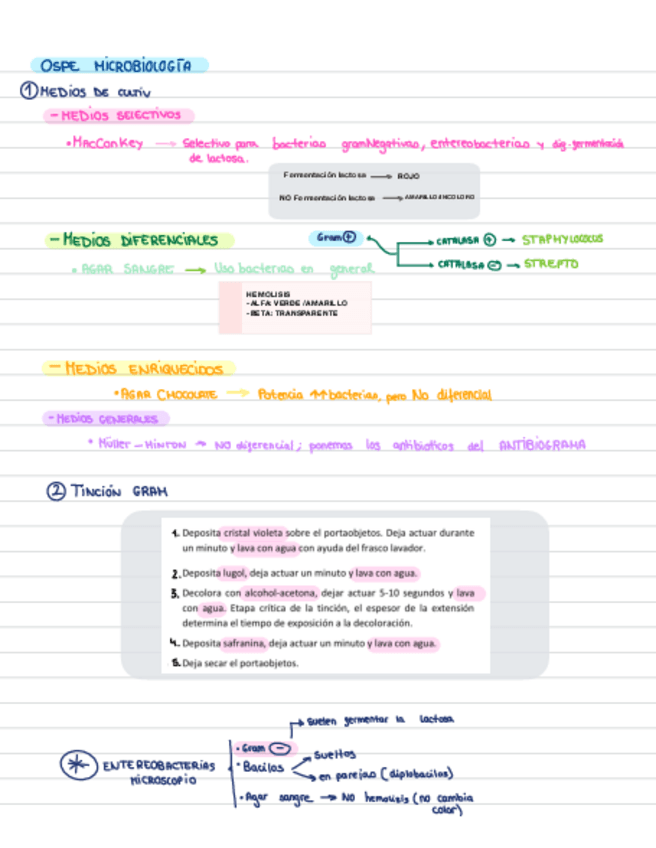 OSPE MICROBIOLOGÍA
① MEDIOS DE CULTIV
- MEDIOS SELECTIVOS
• MacConkey → Selectivo para bacterias gramNegativas, entereobacterias y dig. fermentación
de lactosa.
Fermentación lactosa → ROJO
NO Fermentación lactosa → AMARILLO/INCOLORO
- MEDIOS DIFERENCIALES
Gram ⊕
CATALASA ⊕ → STAPHYLOCOCUS
• AGAR SANGRE → Usa bacterias en general
CATALASA ⊖ → STREPTO
HEMOLISIS
-ALFA: VERDE /AMARILLO
-BETA: TRANSPARENTE
- MEDIOS ENRIQUECIDOS
• AGAR CHOCOLATE → Potencia ↑↑ bacterias, pero No diferencial
- MEDIOS GENERALES
• Müller-HINTON → NO diferencial; ponemos los antibioticos del ANTIBIOGRAMA
② TINCIÓN GRAM
1. Deposita cristal violeta sobre el portaobjetos. Deja actuar durante
un minuto y lava con agua con ayuda del frasco lavador.
2. Deposita lugol, deja actuar un minuto y lava con agua.
3. Decolora con alcohol-acetona, dejar actuar 5-10 segundos y lava
con agua. Etapa crítica de la tinción, el espesor de la extensión
determina el tiempo de exposición a la decoloración.
4. Deposita safranina, deja actuar un minuto y lava con agua.
5. Deja secar el portaobjetos.
→ Suelen fermentar la lactosa
• Gram ⊖
* ENTEREOBACTERIAS
MICROSCOPIO
• Bacilos
→ Sueltos
→ en parejas (diplobacilos)
• Agar sangre → NO hemolisis (no cambia
color)